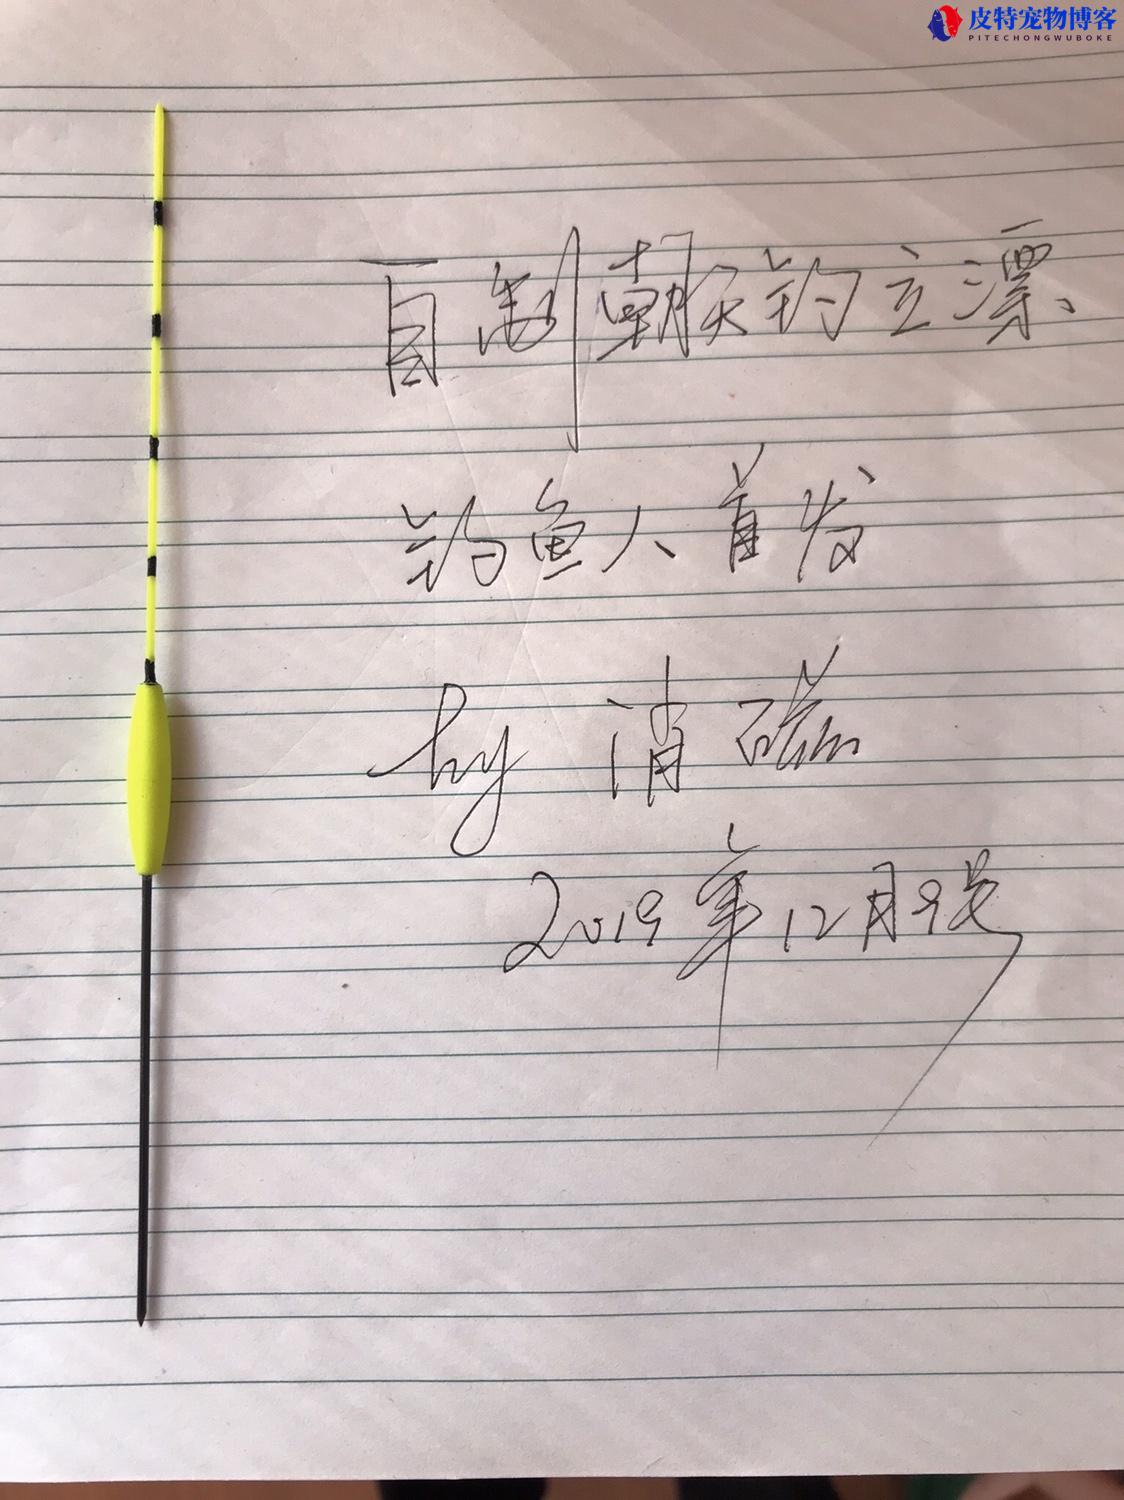 皮特宠物博客
PITECHONGWUBOKE
自制朝天钓立漂
钓鱼人首发
by 消磁
2019年12月9号